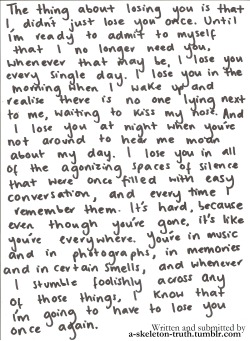 The thing about losing you is that
I, didn't just lose you once. Until
I'm ready to admit to myself
that I no longer need you,
whenever that may be, I lose you
every single day. I lose you in the
morning when I wake up and
realise there is no one lying next
to me, waiting to kiss my nose. And
I lose you at night when you're
not around to hear me moan
about my day. I lose you in all
of the agonizing spaces of silence
that were once filled with easy
conversation, and every time I
remember them. It's hard, because
even though you're gone, it's like
you're everywhere. You're in music
and in photographs, in memories
and in certain smells, and whenever
I stumble foolishly across any
of those things, I know that
I'm going to have to lose you
once again.
Written and submitted by
a-skeleton-truth.tumblr.com